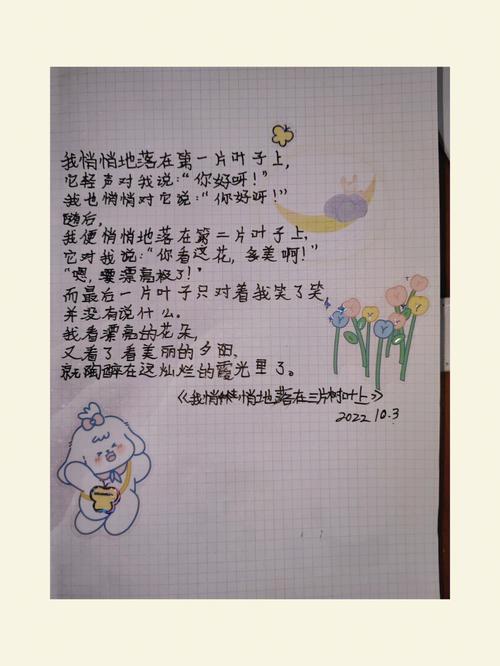 我悄悄地落在第一片叶子上，
它轻声对我说：“你好呀！”
我也悄悄对它说：“你好呀！”
随后，
我便悄悄地落在第二片叶子上，
它对我说：“你看这花，多美啊！”
“嗯，漂亮极了！”
而最后一片叶子只对着我笑了笑，
并没有说什么。
我看漂亮的花朵，
又看了看美丽的夕阳，
就陶醉在这灿烂的霞光里了。
《我悄悄地落在三片树叶上》
2022 10.3